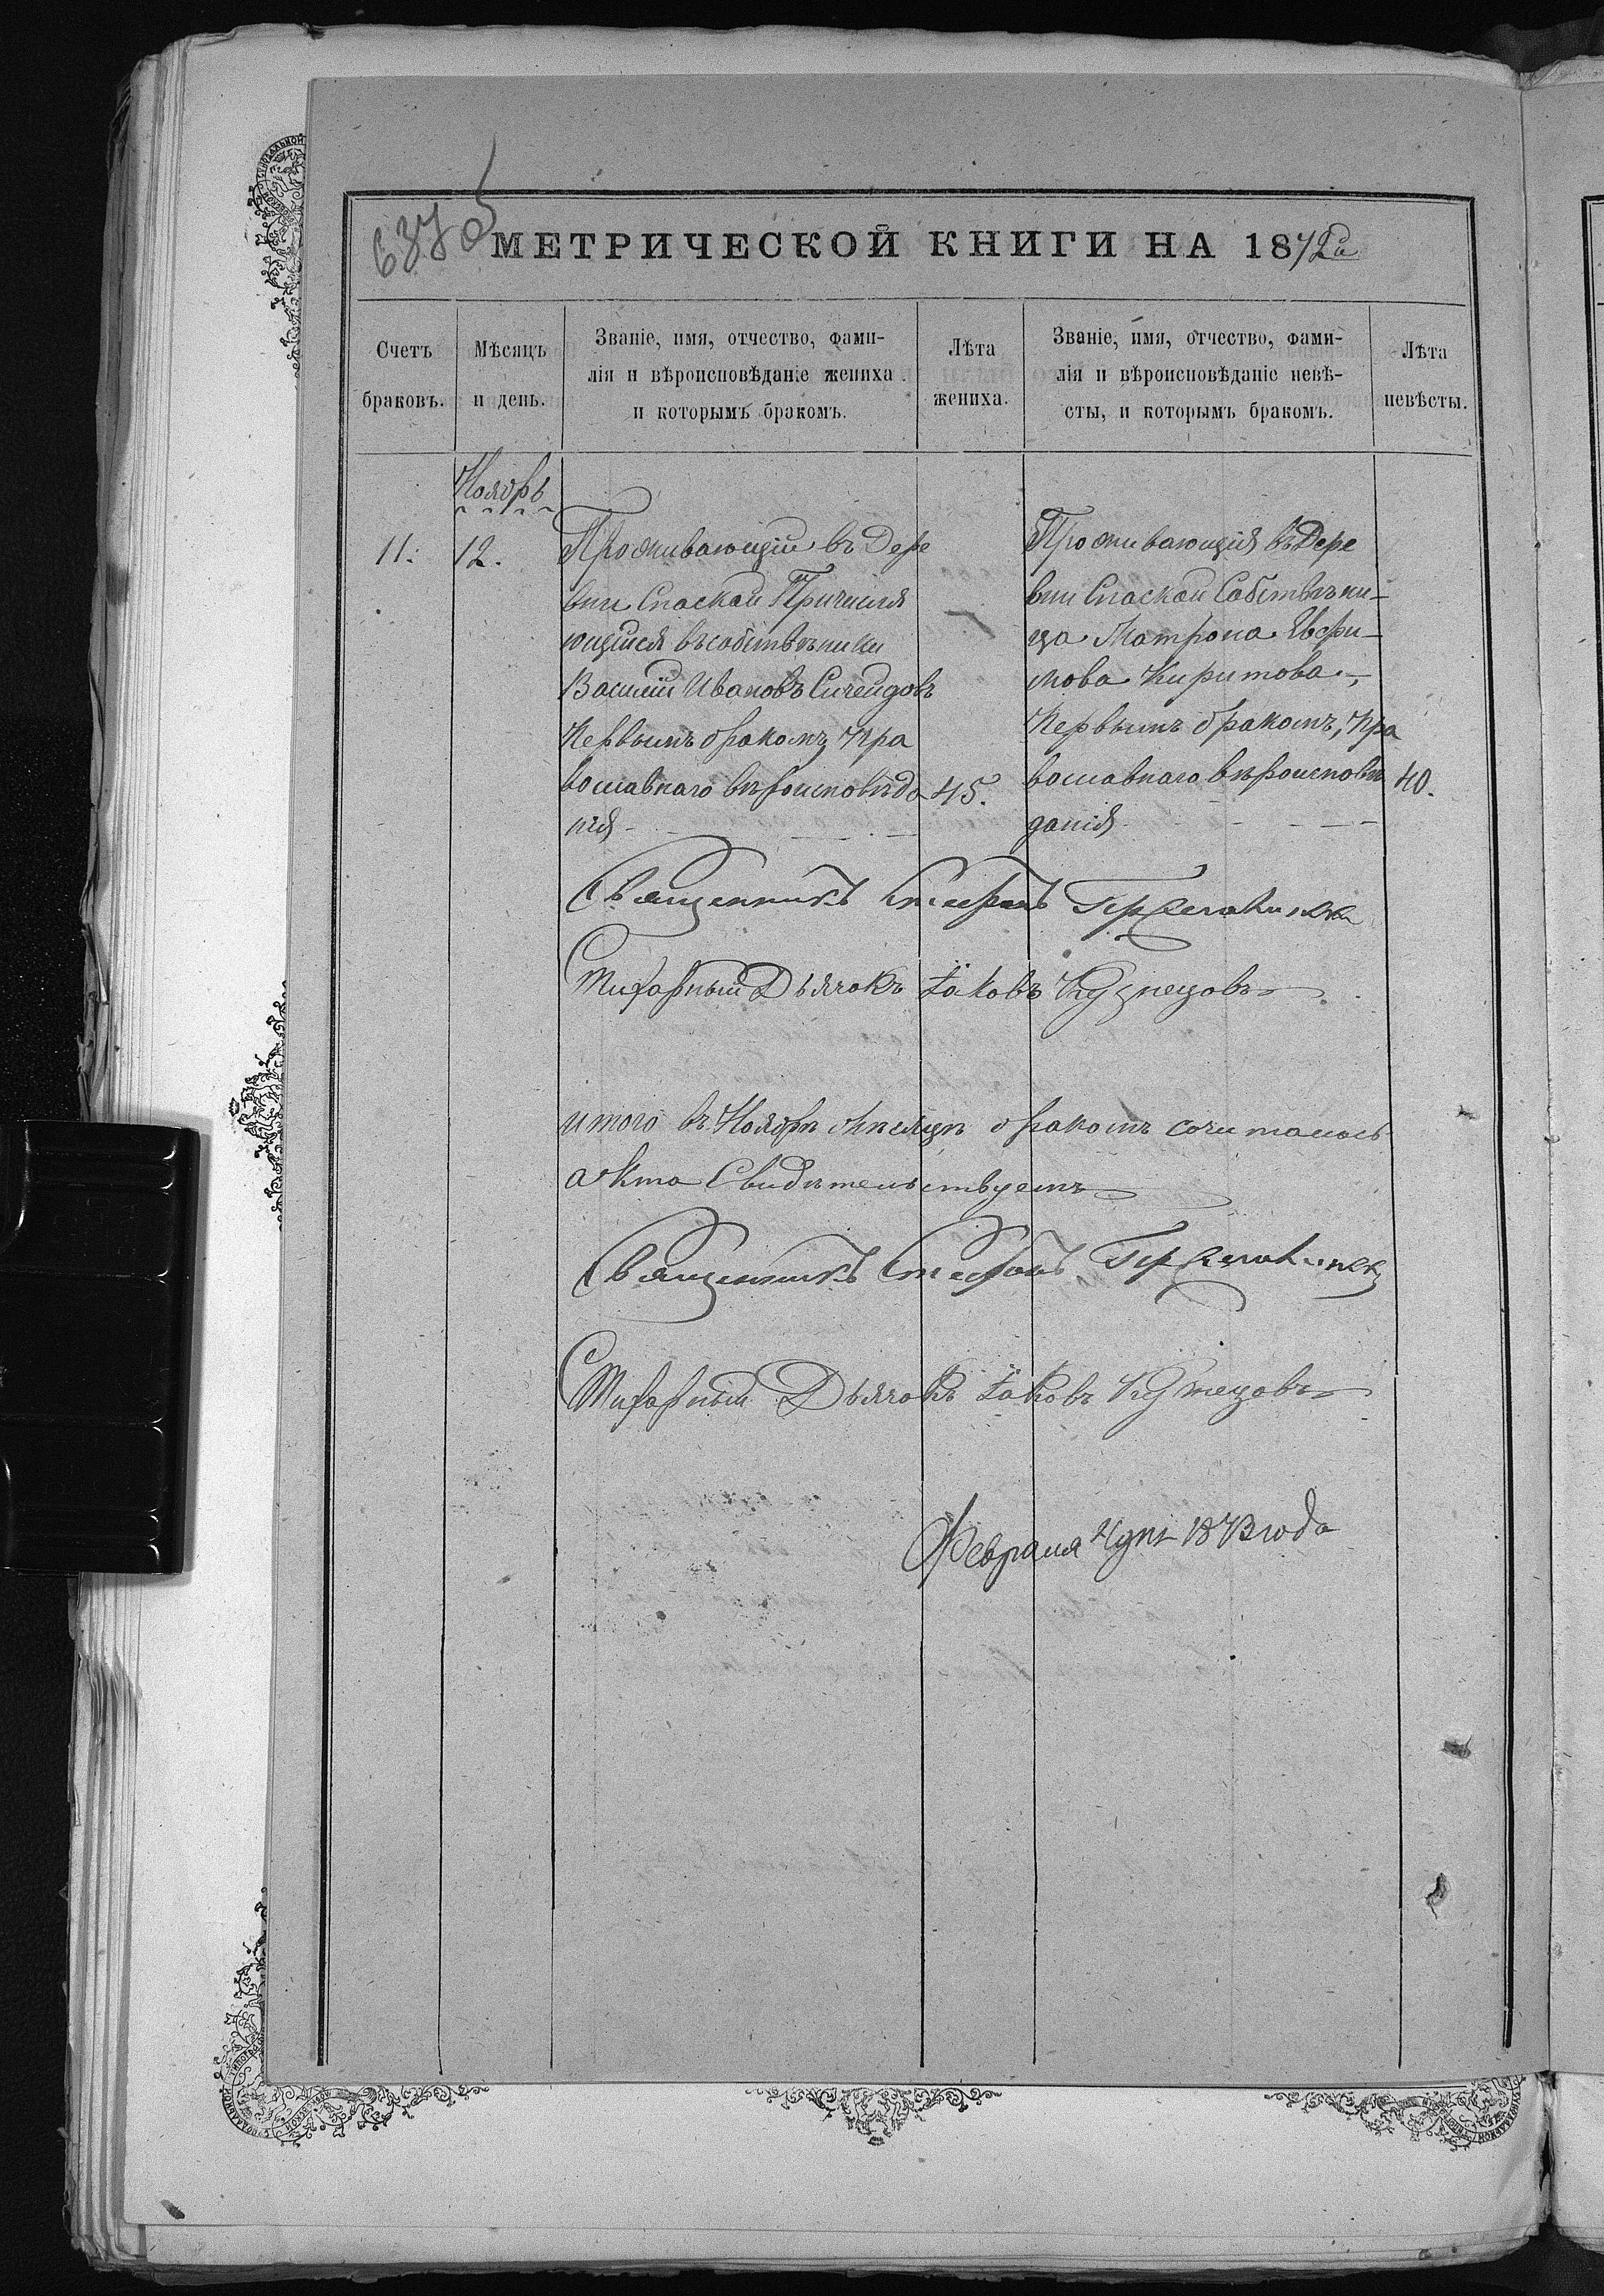 637 об
МЕТРИЧЕСКОЙ КНИГИ НА 1872й
Счетъ браковъ.
Мѣсяцъ и день.
Званіе, имя, отчество, фами-
лія и вѣроисповѣданіе жениха
и которымъ бракомъ.
Лѣта жениха.
Званіе, имя, отчество, фами-
лія и вѣроисповѣданіе невѣ-
сты, и которымъ бракомъ.
Лѣта невѣсты.
Ноябрь
11:
12.
Проживающій въ Дере
вни Спаской Причисля
ющійся въ собствѣники
Василій Ивановъ
Первымъ бракомъ Пра
вославнаго вѣроисповѣда
нія
45.
Проживающія въ Дере
вни Спаской Собствѣни-
ца Матрона Евфи-
мова
Первымъ бракомъ, Пра
вославнаго вѣроисповѣ
данія
40.
Священникъ Стефанъ
Стихарный Дьячокъ Іаковъ Кузнецовъ
итого въ Ноябрѣ мѣсяцѣ бракомъ сочиталось
а кто Свидѣтельствуемъ
Священникъ Стефанъ
Стихарный Дьячокъ Іаковъ Кузнецовъ
Февраля 4 дня 1873 года